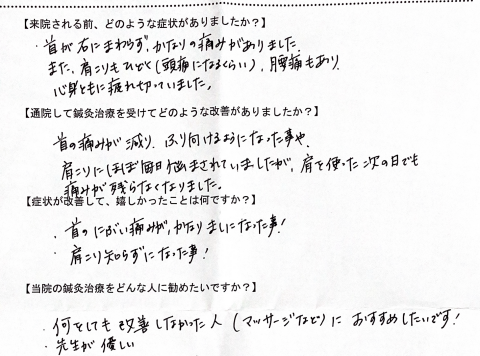 【来院される前、どのような症状がありましたか?】
・首が右にまわらず、かなりの痛みがありました。
また、肩こりもひどく(頭痛になるくらい)、腰痛もあり
心身ともに疲れ切っていました。
【通院して鍼灸治療を受けてどのような改善がありましたか?】
首の痛みが減り、ふり向けるようになった事や、
肩こりにほぼ毎日悩まされていましたが、肩を使った次の日でも
痛みが残らなくなりました。
【症状が改善して、嬉しかったことは何ですか?】
・首のにぶい痛みが、かなりましになった事!
・肩こり知らずになった事!
【当院の鍼灸治療をどんな人に勧めたいですか?】
・何をしても改善しなかった人(マッサージなど)におすすめしたいです!
・先生が優しい